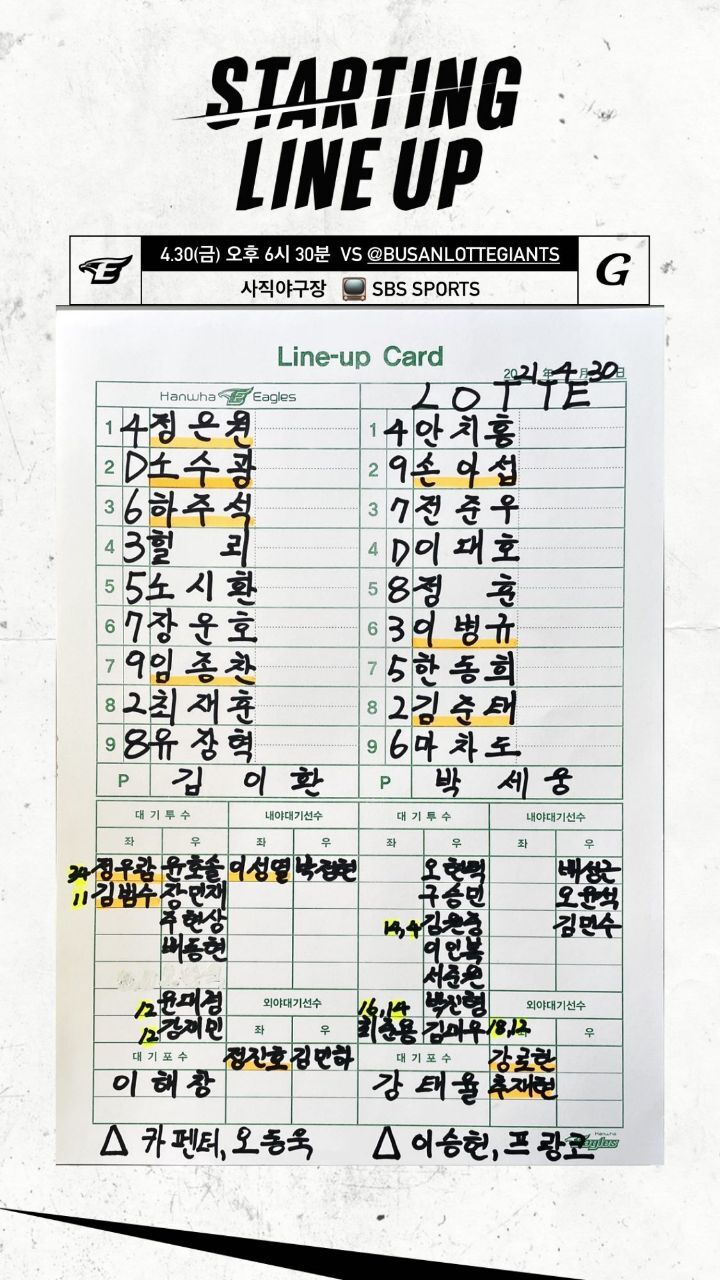 STARTING
LINE UP
4.30(금) 오후 6시 30분 VS @BUSANLOTTEGIANTS
사직야구장 SBS SPORTS
Line-up Card
2021年 4月 30日
Hanwha Eagles LOTTE
1 4 정은원 1 4 안치홍
2 D 노수광 2 9 손아섭
3 6 하주석 3 7 전준우
4 3 힐리 4 D 이대호
5 5 노시환 5 8 정훈
6 7 장운호 6 3 이병규
7 9 임종찬 7 5 한동희
8 2 최재훈 8 2 김준태
9 8 유장혁 9 6 마차도
P 김이환 P 박세웅
대기투수 내야대기선수 대기투수 내야대기선수
좌 우 좌 우 좌 우 좌 우
정우람 윤호솔 이성열 박정현 오현택 배성근
11 김범수 장민재 구승민 오윤석
주현상 14,4 김원중 김민수
배동현 이인복
서준원
12 윤대경 외야대기선수 16,14 박진형 외야대기선수
12 강재민 좌 우 최준용 김대우 18,12 우
대기포수 정진호 김민하 대기포수 강로한
이해창 강태율 추재현
△ 카펜터, 오동욱 △ 이승헌, 프랑코
Hanwha Eagles